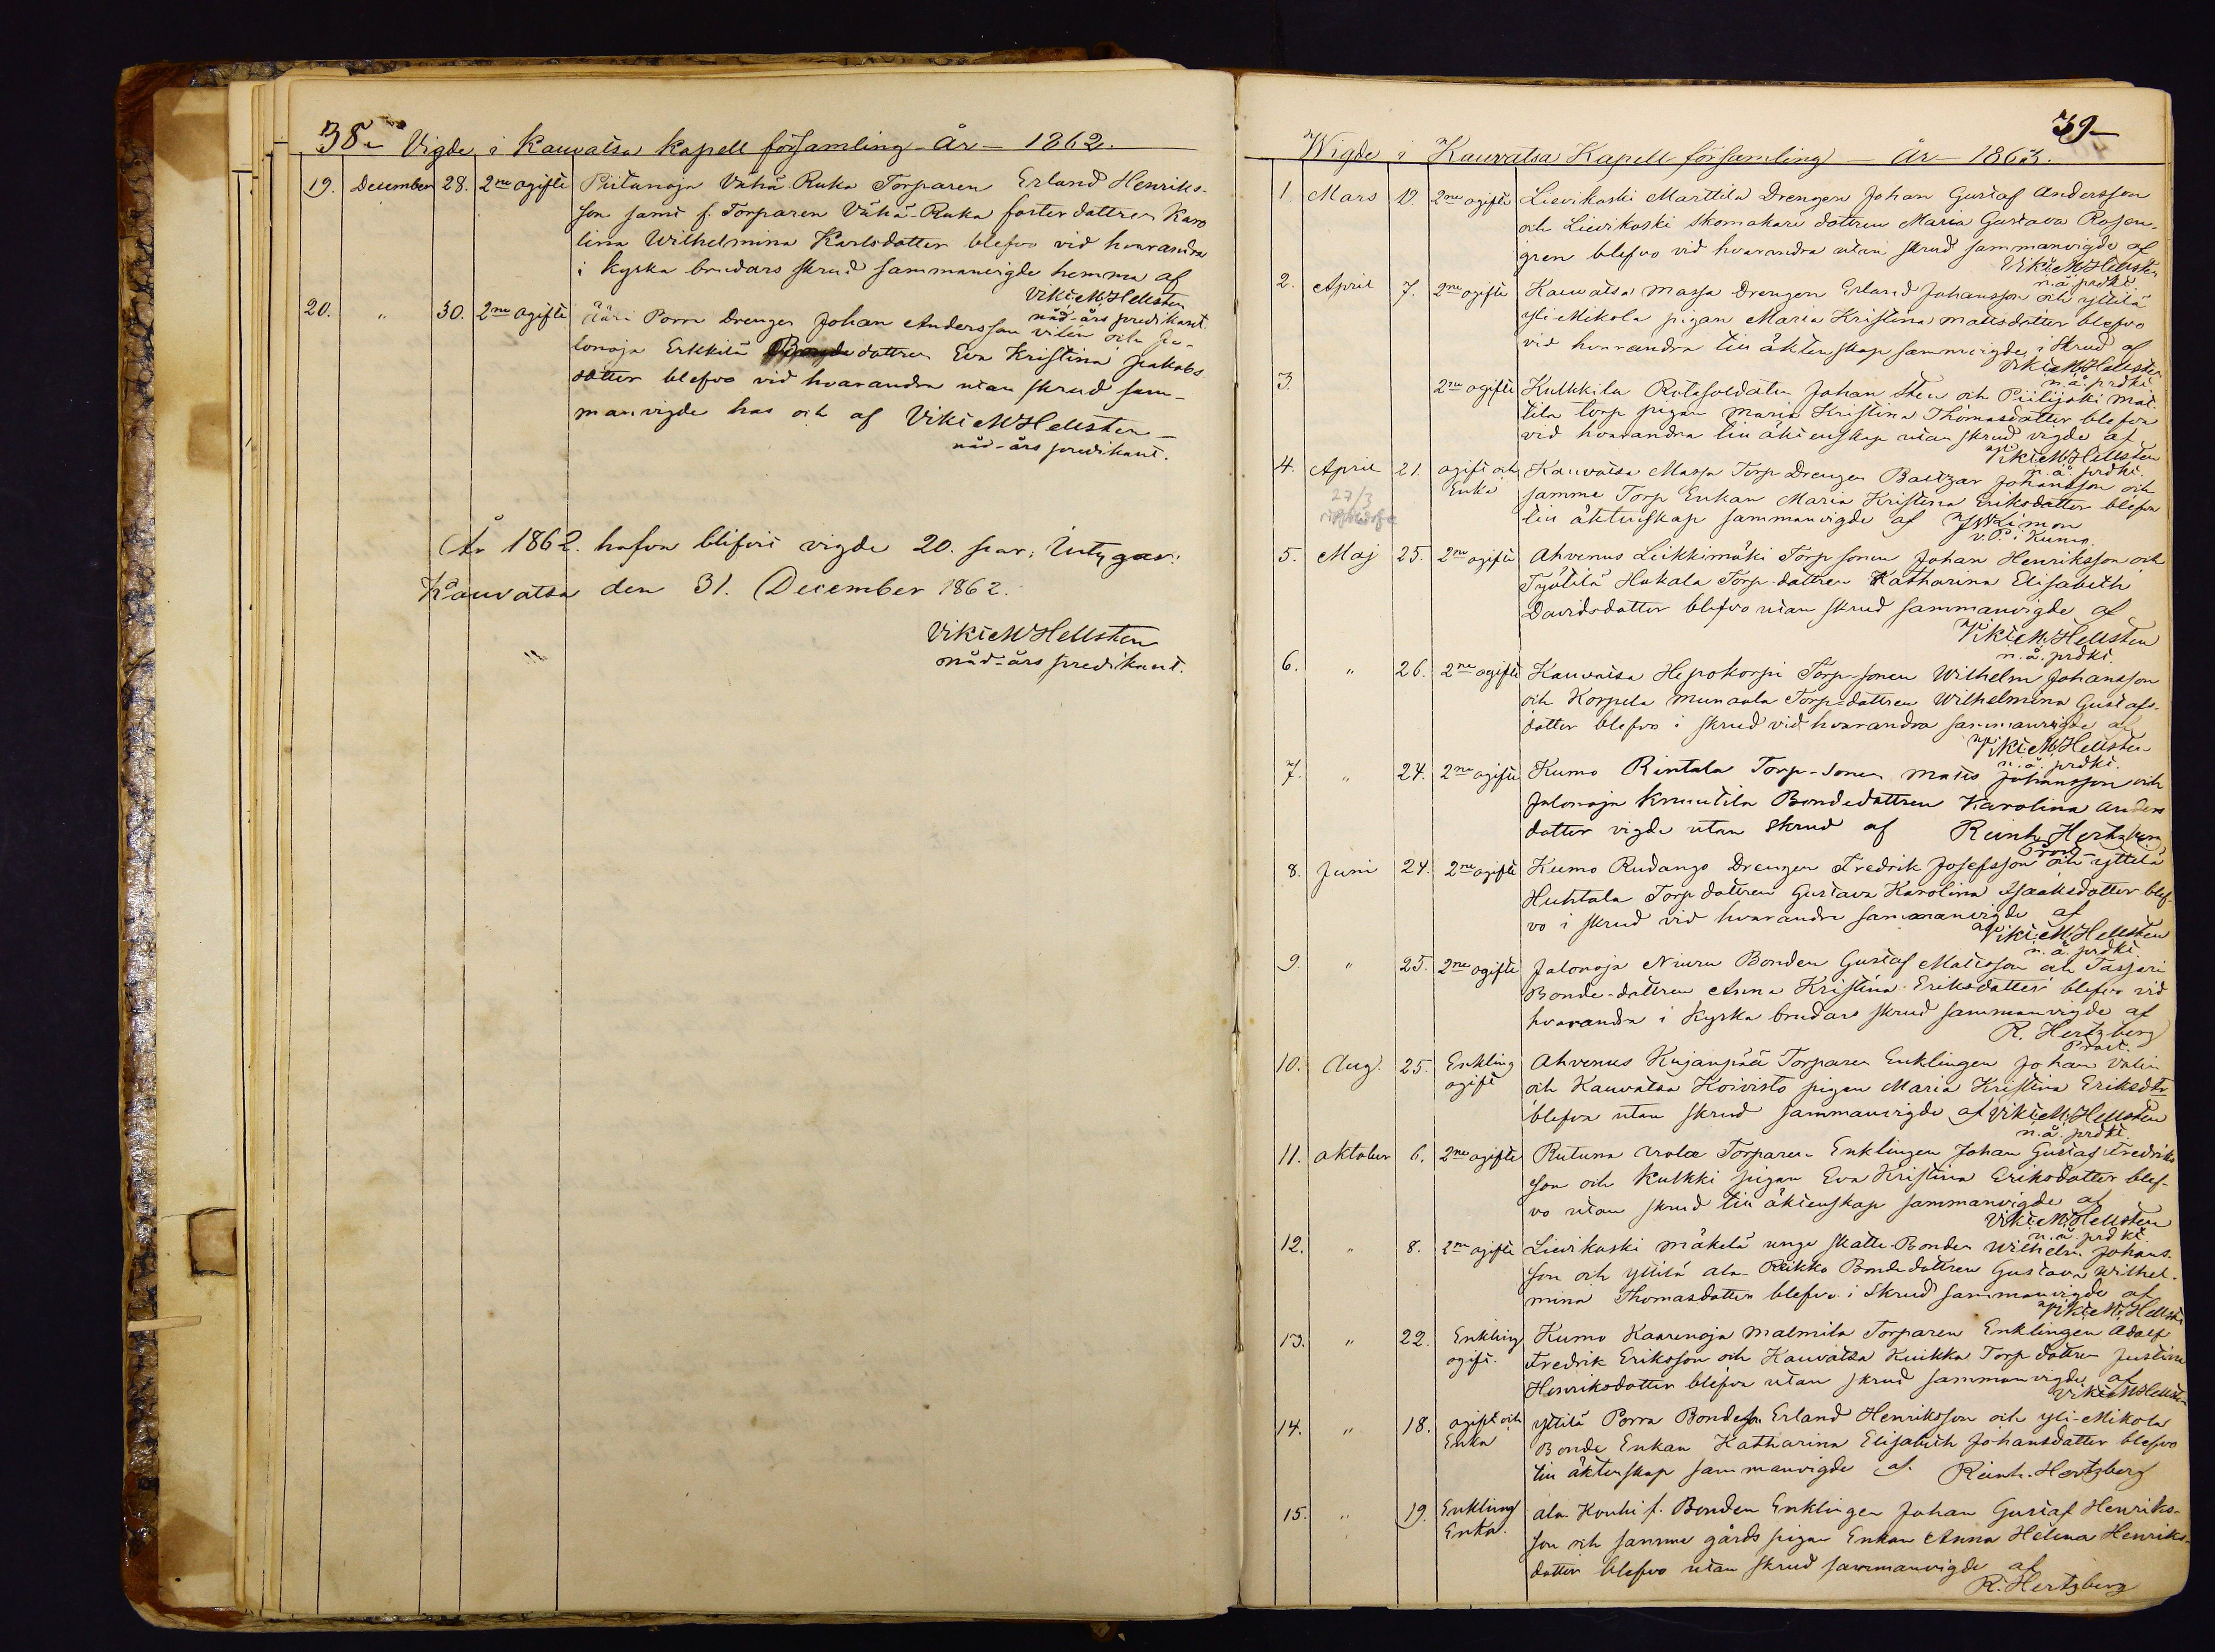 38.
Vigde i Kauvatsa Kapell församling - År - 1862.
19. December 28. 2ne ogifte Piitunoja Vähä-Ruka Torparen Erland Henriks-
son samt f. Torparen Vähä-Ruka foster dottren Karo
lina Wilhelmina Karlsdotter blefvo vid hvarandra
i kyrka brudars skrud sammanvigde hemma af
Vikt M Hellsten
nåd-års predikant.
20. " 30. 2ne ogifte Ääri Porra Drengen Johan Andersson Vilén och Ja-
lonoja Erkkilä Bonde dottren Eva Kristina Jakobs
dotter blefvo vid hvarandra utan skrud sam-
manvigde hos och af Vikt M Hellsten
nåd-års predikant.
År 1862. hafva blifvit vigde 20. par, Intygar:
Kauvatsa den 31. December 1862.
Vikt M Hellsten
nåd-års predikant.
39
Wigde i Kauvatsa Kapell församling - År - 1863.
1. Mars 19. 2ne ogifte Lievikoski Marttila Drengen Johan Gustaf Andersson
och Lievikoski Skomakare dottren Maria Gustava Rosen-
gren blefvo vid hvarandra utan skrud sammanvigde af
Vikt M Hellsten
n. å. prdkt.
2. April 7. 2ne ogifte Kauvatsa Massa Drengen Erland Johansson och Yttilä
Yli-Mikola pigan Maria Kristina Mattsdotter blefvo
vid hvarandra till äktenskap sammvigde i skrud af
Vikt M Hellsten
n. å. prdkt.
3. 2ne ogifte Kulkkila Rotesoldaten Johan Sten och Piilijoki Mat-
tila torp pigan Maria Kristina Thomasdotter blefvo
vid hvarandra till äktenskap utan skrud vigde af
Vikt M Hellsten
n. å. prdkt.
4. April 21. ogift och Kauvatsa Massa Torp Drengen Baltzar Johansson och
27/3 Enka samma Torp Enkan Maria Kristina Eriksdotter blefvo
till äktenskap sammanvigde af
v. P. i Kumo.
5. Maj 25. 2ne ogifte Ahvenus Leikkimäki Torp sonen Johan Henriksson och
Työtilä Hakala Torp-dottren Katharina Elisabeth
Davidsdotter blefvo utan skrud sammanvigde af
Vikt M Hellsten
n. å. prdkt.
6. " 26. 2ne ogifte Kauvatsa Hepokorpi Torp-sonen Wilhelm Johansson
och Korpela Munaala Torp-dottren Wilhelmina Gustafs-
dotter blefvo i skrud vid hvarandra sammanvigde af
Vikt M Hellsten
n. å. prdkt.
7. " 24. 2ne ogifte Kumo Rintala Torp-sonen Matts Johansson och
Jalonoja Knuutila Bondedottren Karolina Anders
dotter vigde utan skrud af Reinh. Hertzberg
Prost
8. Juni 24. 2ne ogifte Kumo Rudango Drengen Fredrik Josefsson och Yttilä
Huhtala Torp dottren Gustava Karolina Isaaksdotter blef-
vo i skrud vid hvarandra sammanvigde af
Vikt M Hellsten
n. å. prdkt.
9. " 25. 2ne ogifte Jalonoja Niuru Bonden Gustaf Mattsson och Tassari
Bonde-dottren Anna Kristina Eriksdotter blefvo vid
hvarandra i kyrka brudars skrud sammanvigde af
R. Hertzberg
Prost.
10. Aug. 25. Enkling Ahvenus Kujanpää Torparen Enklingen Johan Valin
ogift och Kauvatsa Koivisto pigan Maria Kristina Eriksdtr
blefvo utan skrud sammanvigde af Vikt M Hellsten
n. å. prdkt.
11. Oktober 6. 2ne ogifte Rutuna Uola Torparen Enklingen Johan Gustaf Fredriks
son och Kulkki pigan Eva Kristina Eriksdotter blef-
vo utan skrud till äktenskap sammanvigde af
Vikt M Hellsten
n. å. prdkt.
12. " 8. 2ne ogifte Lievikoski Mäkelä unge skatte-Bonden Wilhelm Johans-
son och Yttilä Ala-Reikko Bondedottren Gustava Wilhel-
mina Thomasdotter blefvo i skrud sammanvigde af
Vikt M Hellsten
13. " 22. Enkling Kumo Kaarenoja Malmila Torparen Enklingen Adolf
ogift. Fredrik Eriksson och Kauvatsa Kuikka Torp dottren Justina
Henriksdotter blefvo utan skrud sammanvigde af
Vikt M Hellsten
14. " 18. ogift och Yttilä Porra Bondeson Erland Henriksson och Yli-Mikola
Enka Bonde Enkan Katharina Elisabeth Johansdotter blefvo
till äktenskap sammanvigde af. Reinh. Hertzberg
15. " 19. Enkling Ala-Kouhi f. Bonden Enklingen Johan Gustaf Henriks-
Enka. son och samma gårds pigan Enkan Anna Helena Henriks-
dotter blefvo utan skrud sammanvigde af
R. Hertzberg